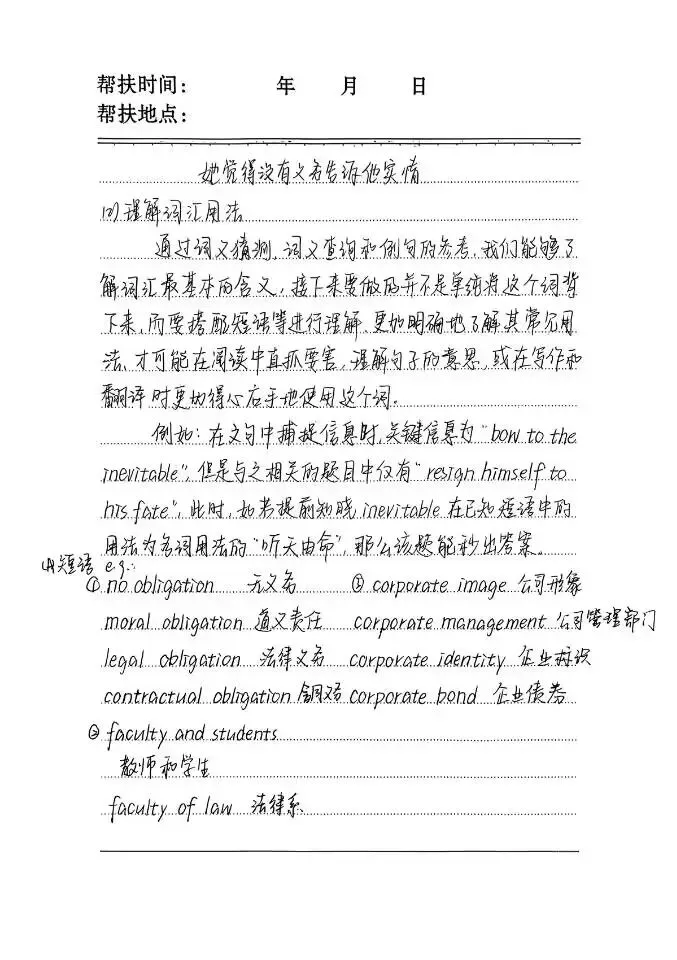 帮扶时间： 年 月 日
帮扶地点：
她觉得没有义务告诉他实情
(2)理解词汇用法
通过词义猜测、词义查询和例句的参考，我们能够了
解词汇最基本的含义，接下来要做的并不是单纯将这个词背
下来，而要搭配短语等进行理解，更加明确地了解其常见用
法，才可能在阅读中直抓要害，理解句子的意思，或在写作和
翻译时更加得心应手地使用这个词。
例如：在文句中捕捉信息时，关键信息为“bow to the
inevitable”，但是与之相关的题目中仅有“resign himself to
his fate”，此时，如若提前知晓inevitable在已知短语中的
用法为名词用法的“听天由命”，那么该题能秒出答案。
短语 e.g.:
① no obligation 无义务 ③ corporate image 公司形象
moral obligation 道义责任 corporate management 公司管理部门
legal obligation 法律义务 corporate identity 企业标识
contractual obligation corporate bond 企业债券
② faculty and students
教师和学生
faculty of law 法律系